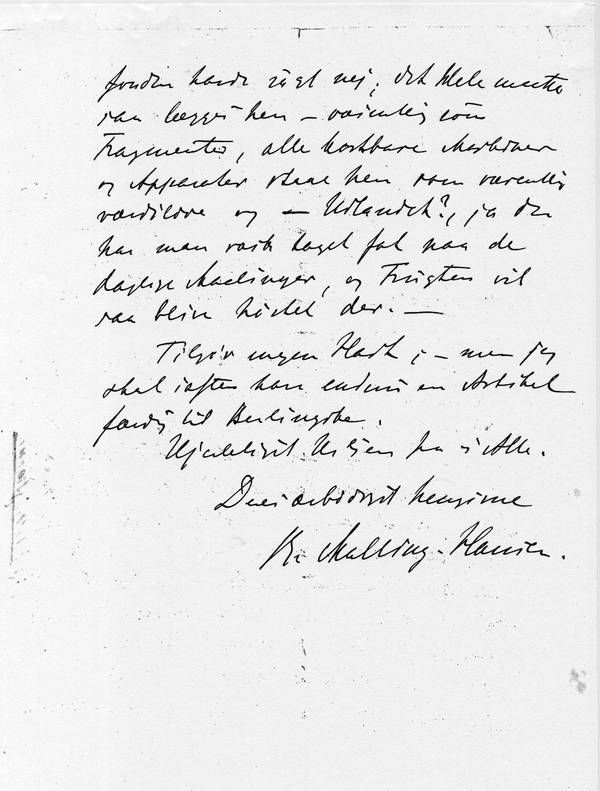 fonden havde sagt nej, det Hele maatte
saa lægges hen – som
Fragmenter, alle kostbare Maskiner
og Apparater staae hen som
værdiløse og – Udlandet?, ja der
har man taget fat paa de
daglige Maalinger, og Frugten vil
saa blive høstet der. —
Tilgiv megen Hast; – men jeg
skal iaften have endnu en Artikel
færdig til Berlingske.
Hjerteligst Hilsen fra os Alle.
Deres ærbødigst hengivne
R. Malling-Hansen.